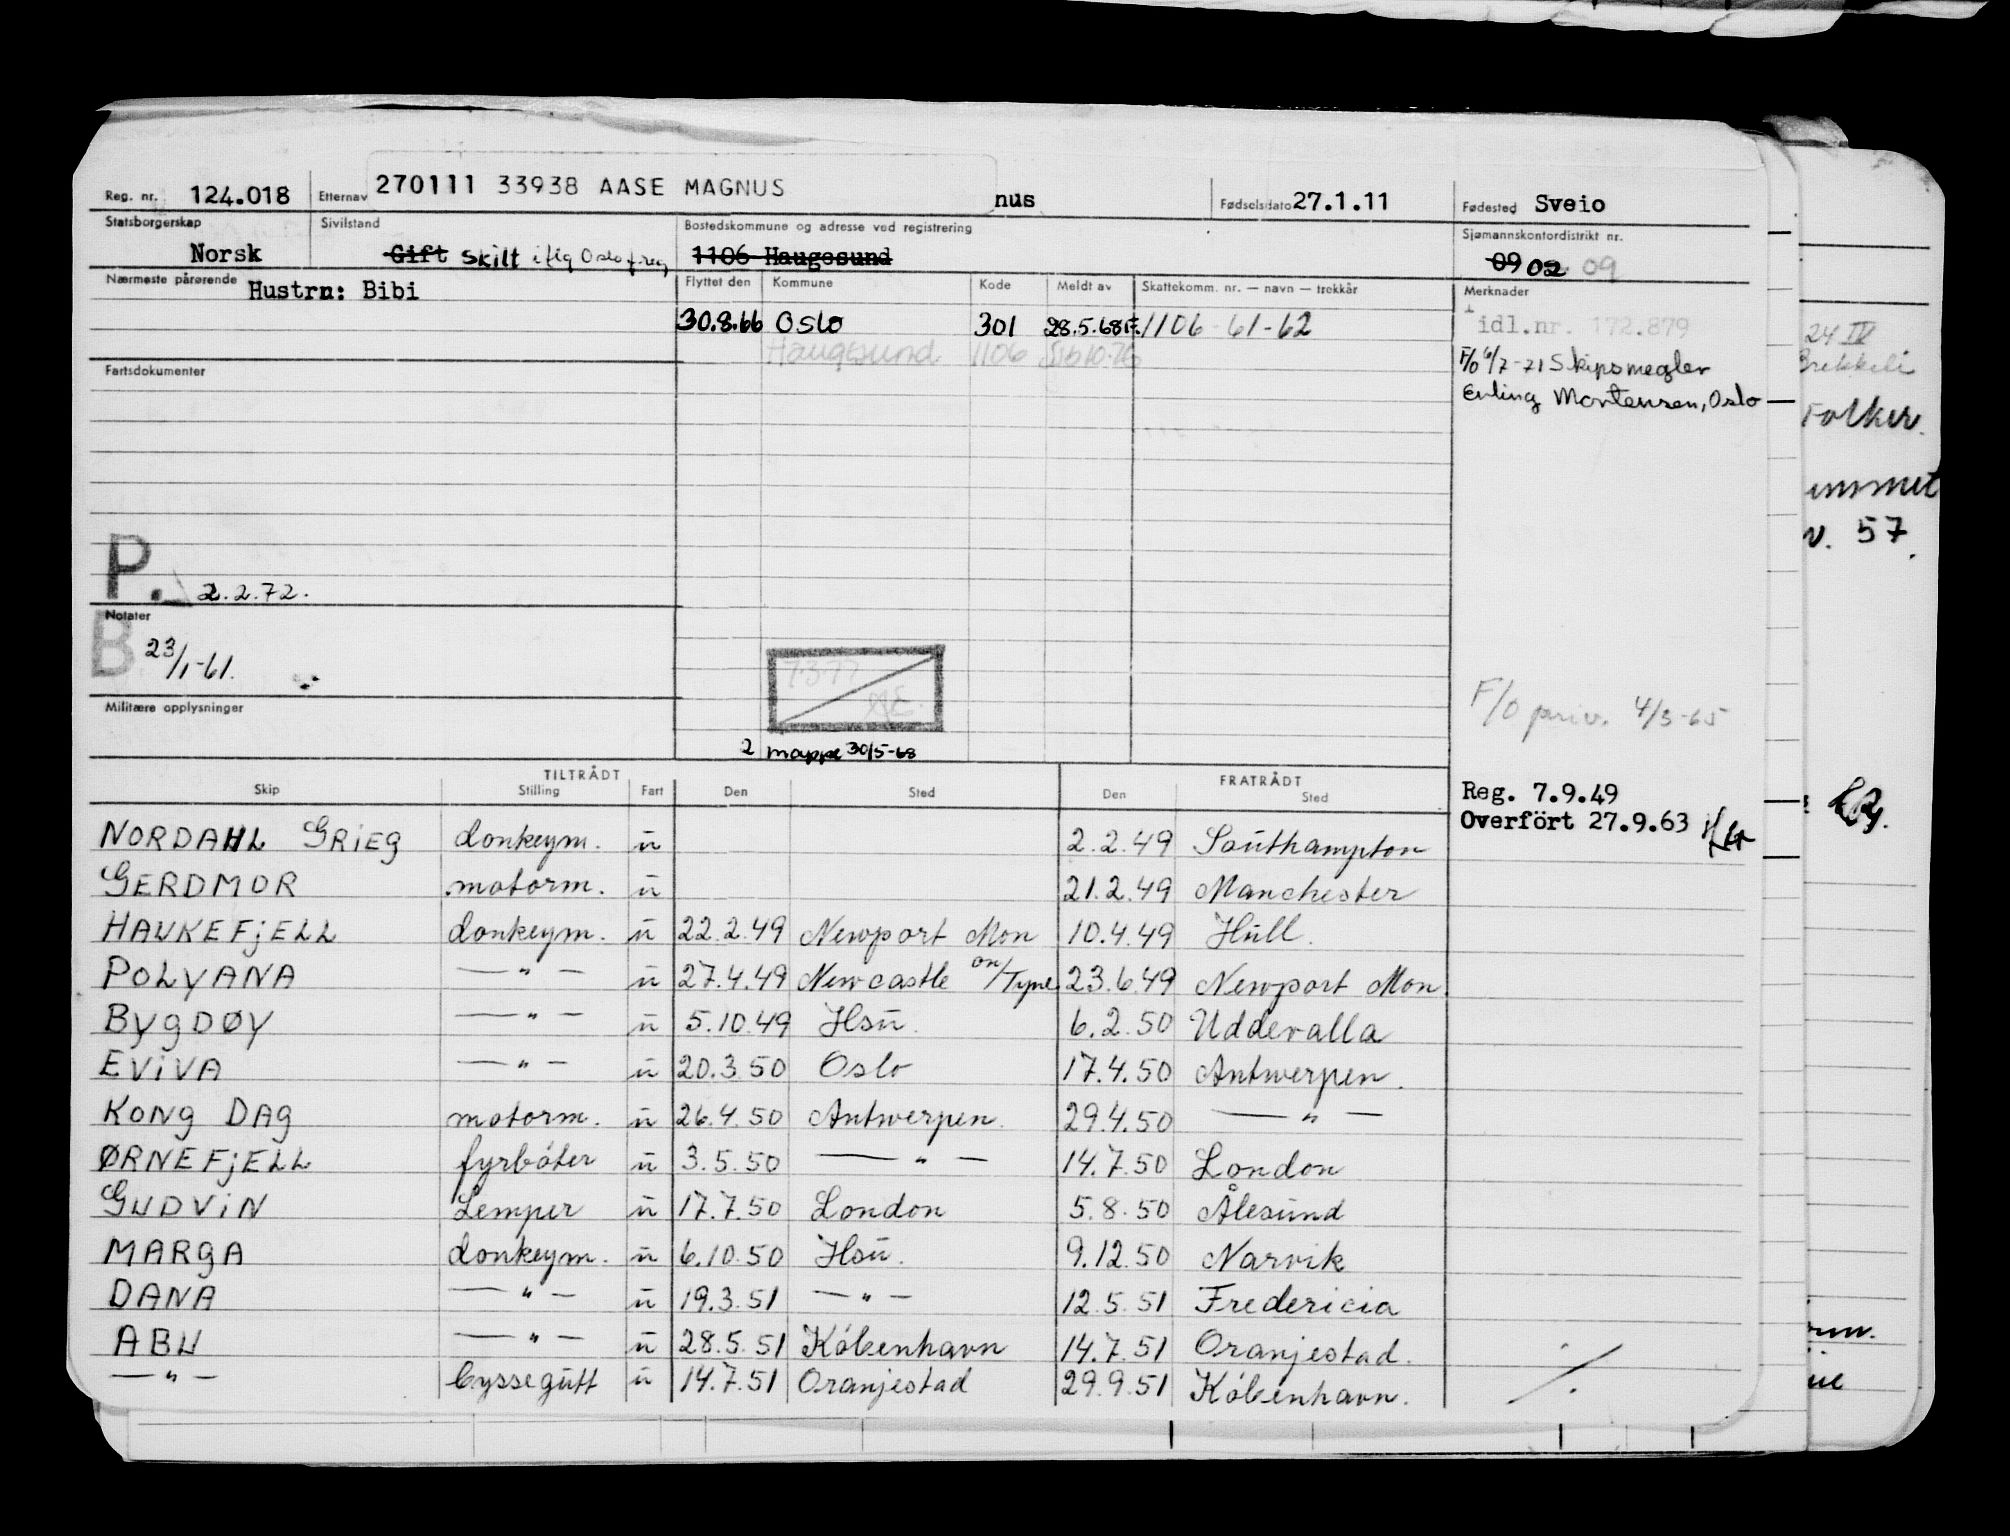 Reg. nr. 124.018 Etternav 270111 33938 AASE MAGNUS nus Fødselsdato 27.1.11 Fødested Sveio
Statsborgerskap Norsk Sivilstand Gift Skilt iflg Oslo f.reg Bostedskommune og adresse ved registrering 1106 Haugesund Sjømannskontordistrikt nr. 09 02 09
Nærmeste pårørende Hustru: Bibi Flyttet den Kommune Kode Meldt av Skattekomm. nr. — navn — trekkår Merknader
30.8.66 Oslo 301 28.5.68F. 1106-61-62 idl.nr. 172.879
Haugesund 1106
F/O 6/7-71 Skipsmegler
Erling Mortensen, Oslo
Fartsdokumenter
P. 2.2.72.
Notater
B 23/1-61.
7-3-77
Militære opplysninger
F/O priv. 4/3-65
2 mappe 30/5-68
TILTRÅDT FRATRÅDT
Skip Stilling Fart Den Sted Den Sted
Reg. 7.9.49
Overfört 27.9.63
NORDAHL GRIEG donkeym. u 2.2.49 Southampton
GERDMOR motorm. u 21.2.49 Manchester
HAUKEFJELL donkeym. u 22.2.49 Newport Mon 10.4.49 Hull.
POLYANA —"— u 27.4.49 Newcastle on/Tyne 23.6.49 Newport Mon.
BYGDØY —"— u 5.10.49 Hsu. 6.2.50 Uddevalla
EVIVA —"— u 20.3.50 Oslo 17.4.50 Antwerpen.
KONG DAG motorm. u 26.4.50 Antwerpen. 29.4.50 —"—
ØRNEFJELL fyrböter u 3.5.50 —"— 14.7.50 London
GUDVIN Lemper u 17.7.50 London 5.8.50 Ålesund
MARGA donkeym. u 6.10.50 Hsu. 9.12.50 Narvik
DANA —"— u 19.3.51 —"— 12.5.51 Fredericia
ABU —"— u 28.5.51 Köbenhavn 14.7.51 Oranjestad.
—"— byssegutt u 14.7.51 Oranjestad 29.9.51 Köbenhavn.
24 IV
Folker.
v. 57.